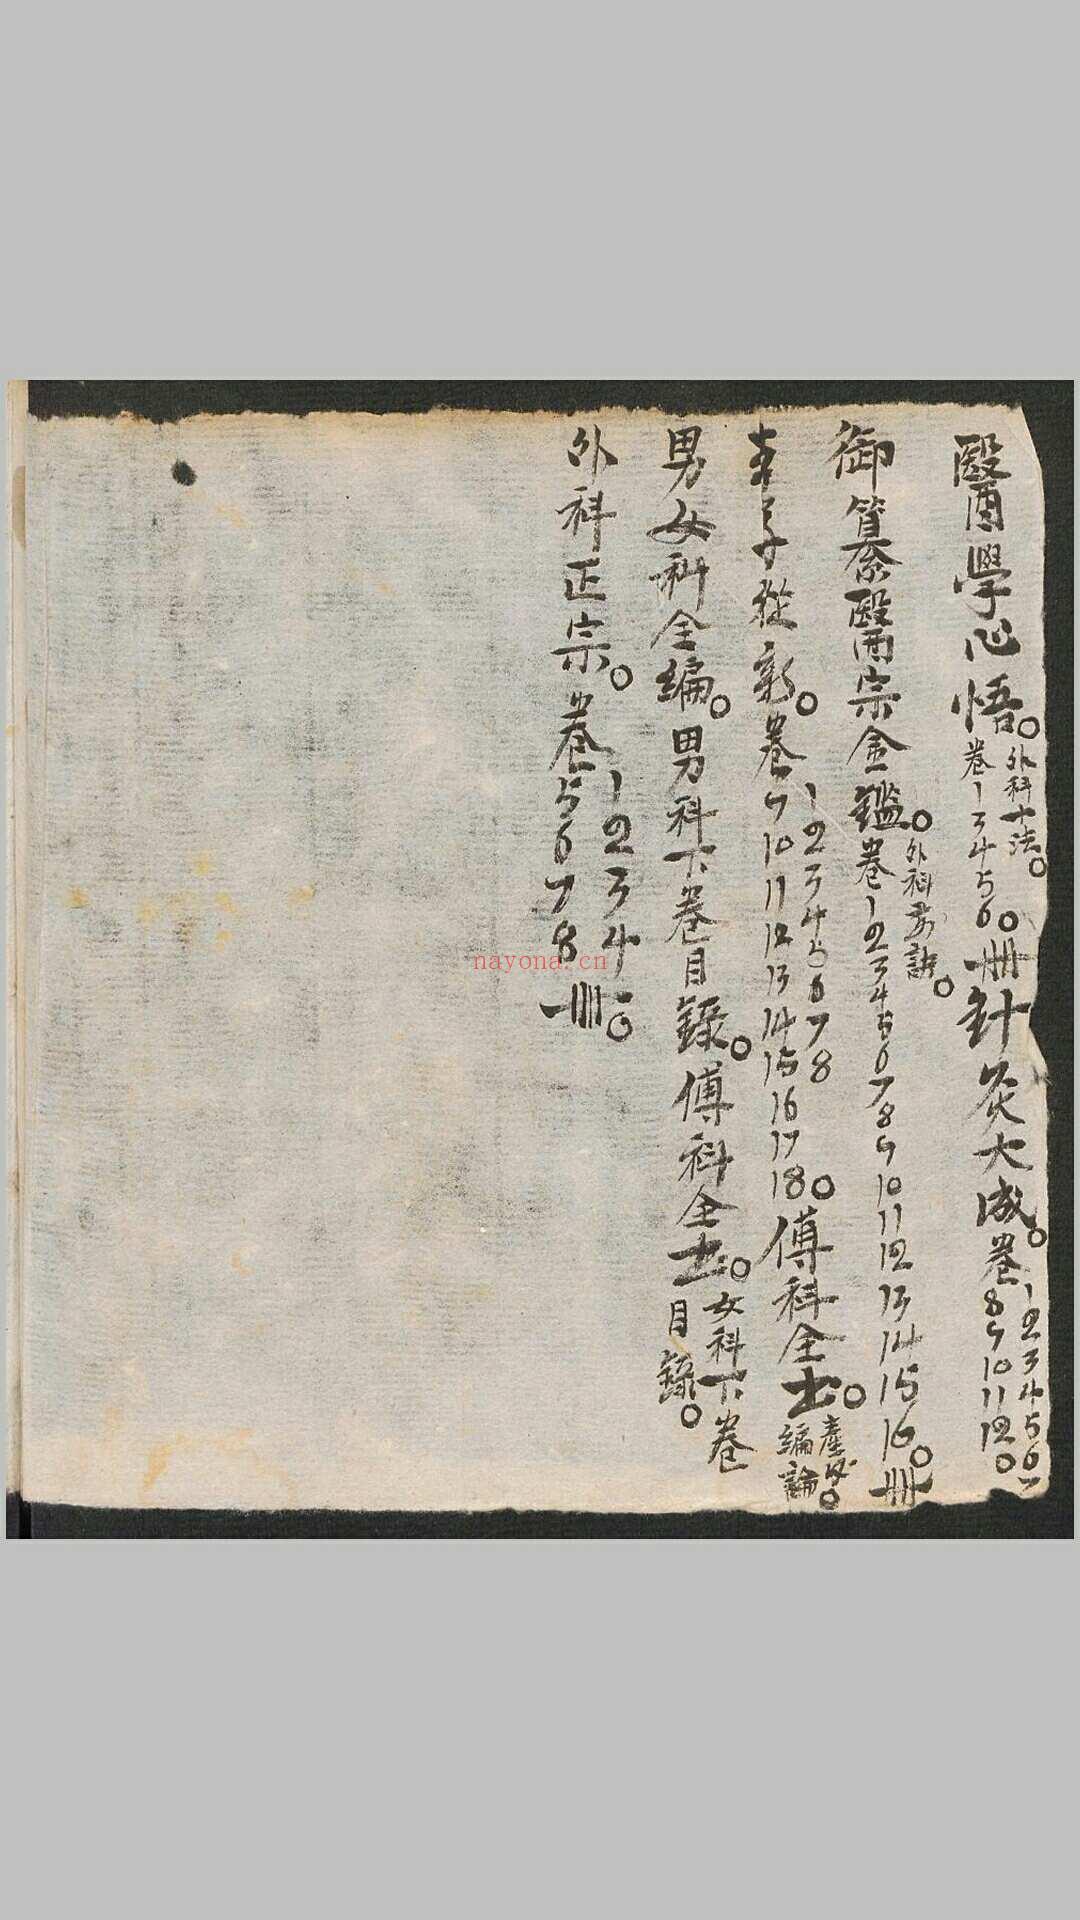 醫學心悟。外科十法。
卷1 3 4 5 6。冊針灸大成。卷1 2 3 4 5 6 7
8 9 10 11 12。
御纂醫宗金鑑。外科 訣。
卷1 2 3 4 5 6 7 8 9 10 11 12 13 14 15 16。冊
從新。卷1 2 3 4 5 6 7 8
9 10 11 12 13 14 15 16 17 18。傅科全 。產 。
編論
男女科全編。男科下卷目錄。傅科全 。女科下卷
目錄。
外科正宗。卷1 2 3 4
5 6 7 8冊。
nayona.cn